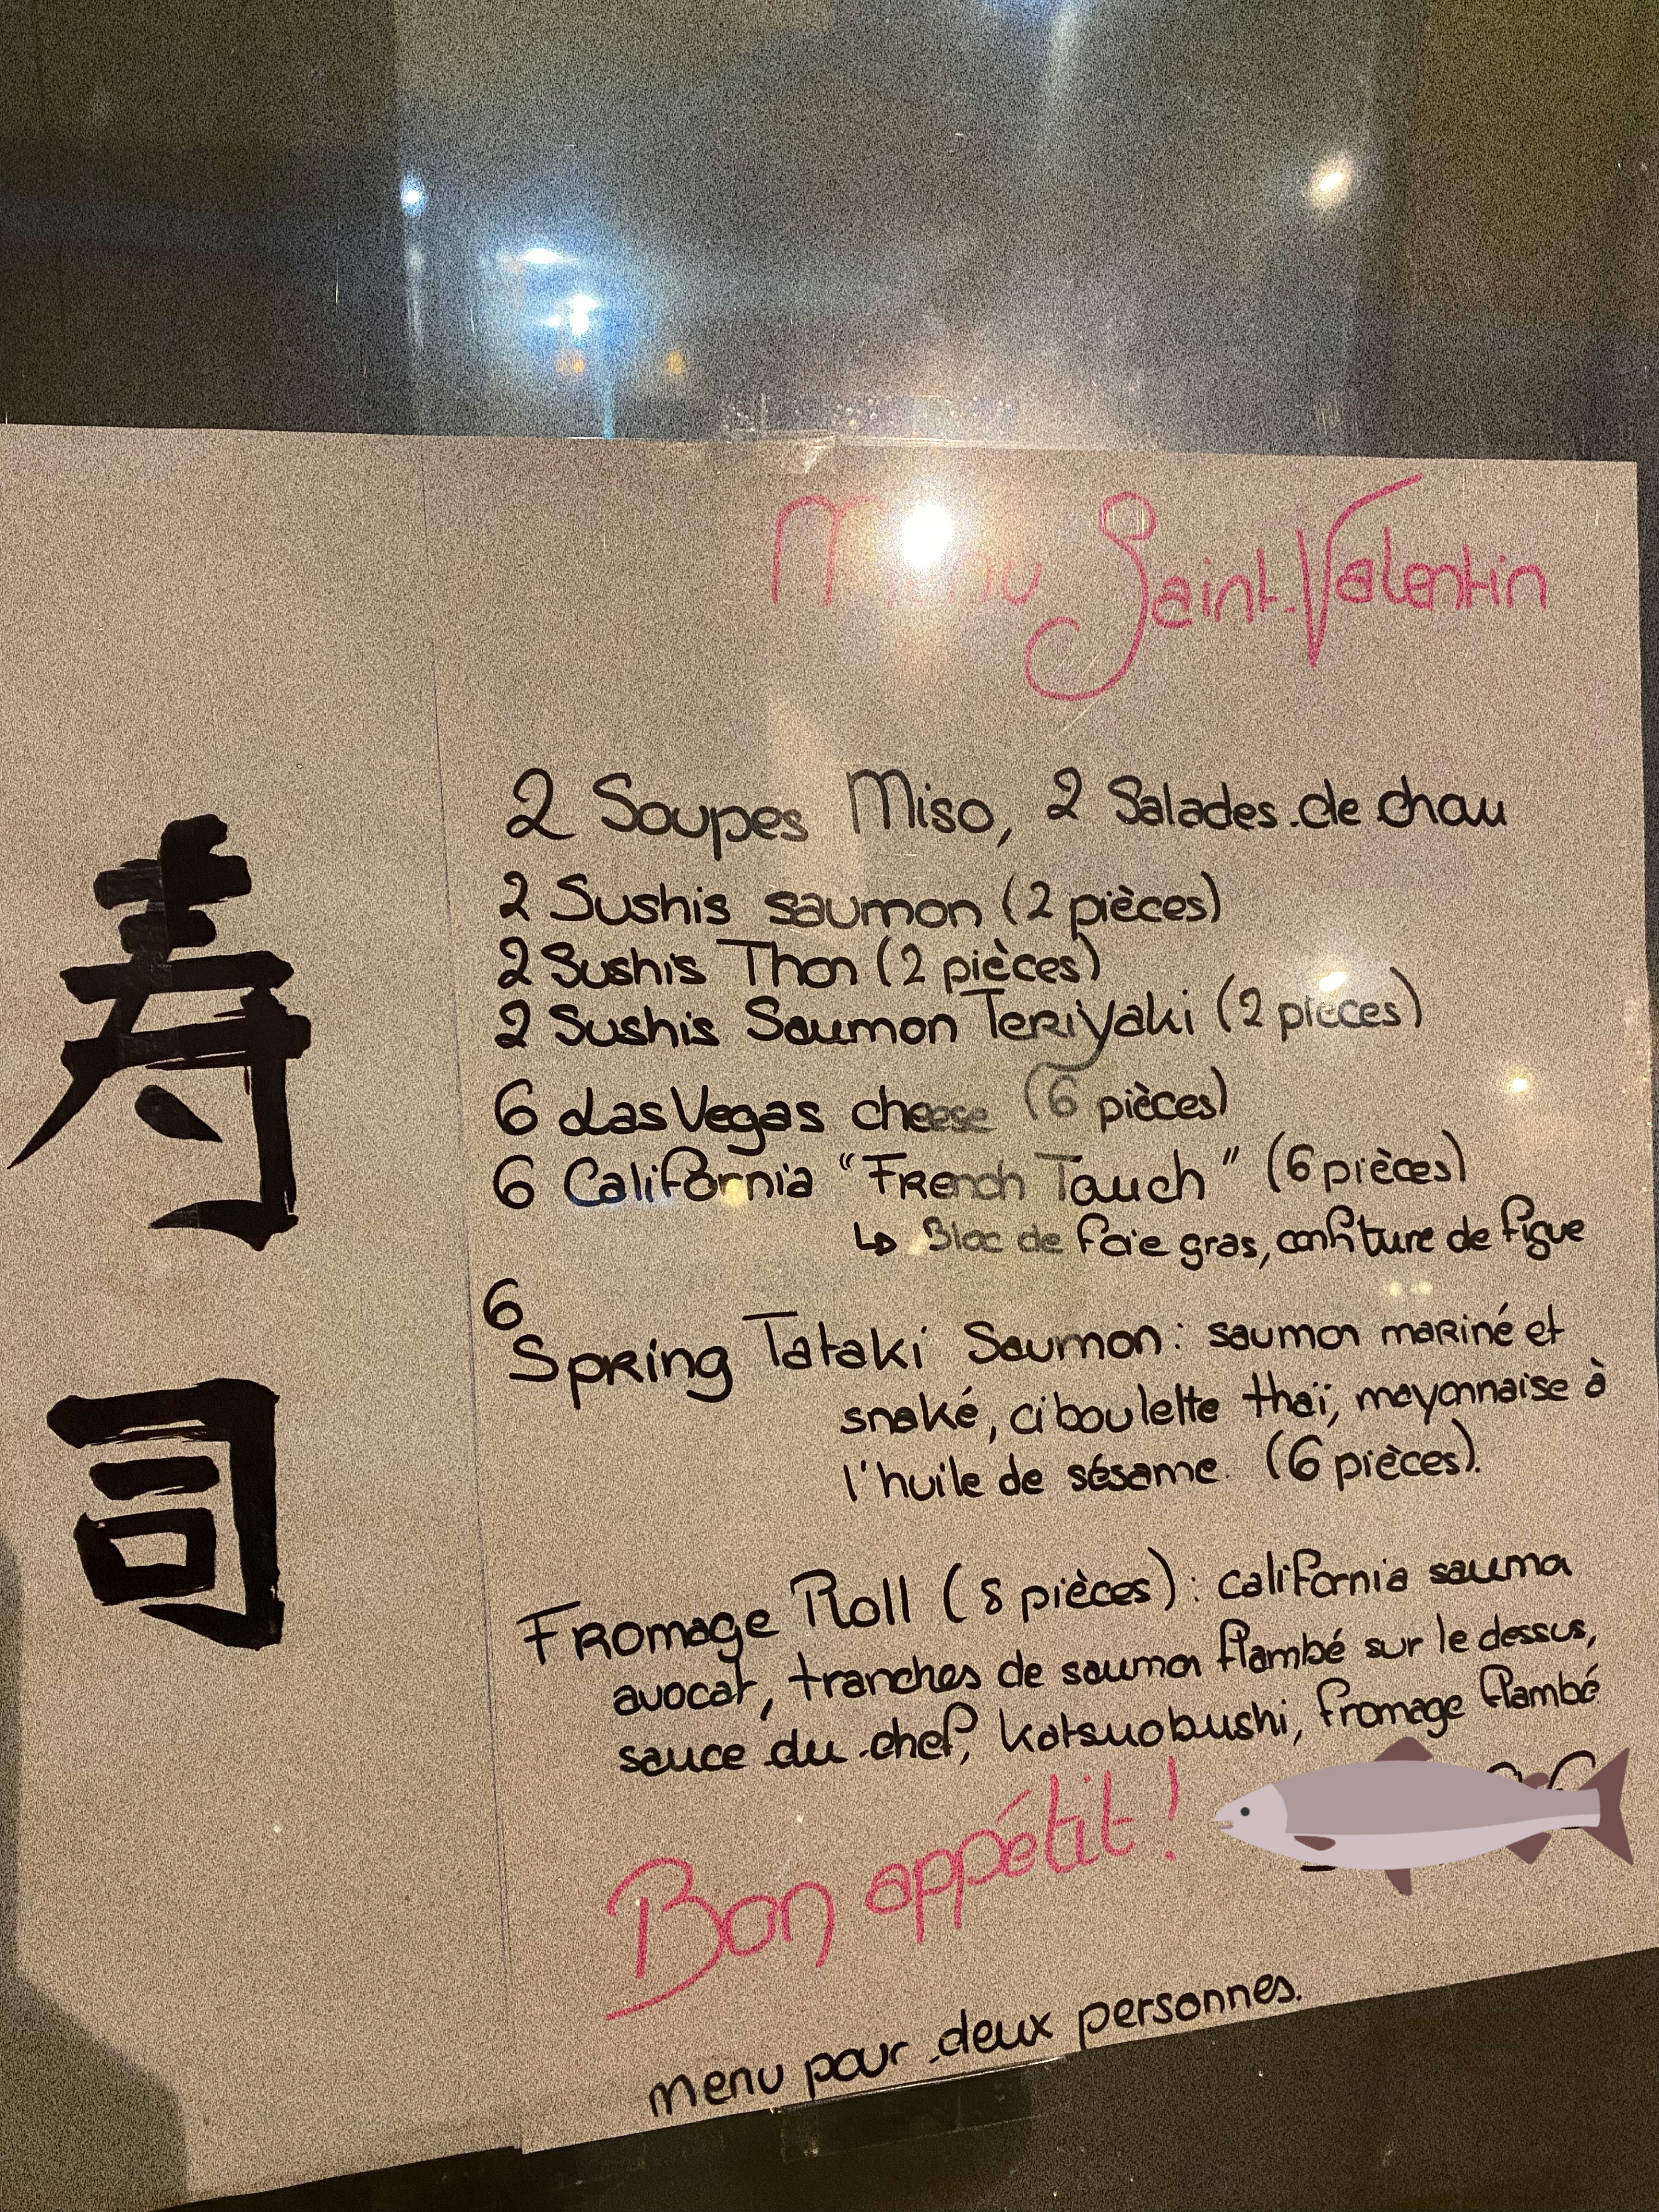 寿司
Menu Saint-Valentin
2 Soupes Miso, 2 Salades de chou
2 Sushis saumon (2 pièces)
2 Sushis Thon (2 pièces)
2 Sushis Saumon Teriyaki (2 pièces)
6 Las Vegas cheese (6 pièces)
6 California "French Touch" (6 pièces)
↳ Bloc de foie gras, confiture de figue
6
Spring Tataki Saumon : saumon mariné et
snaké, ciboulette thaï, mayonnaise à
l'huile de sésame. (6 pièces).
Fromage Roll (8 pièces) : california saumon
avocat, tranches de saumon flambé sur le dessus,
sauce du chef, katsuobushi, fromage flambé
Bon appétit !
menu pour deux personnes.